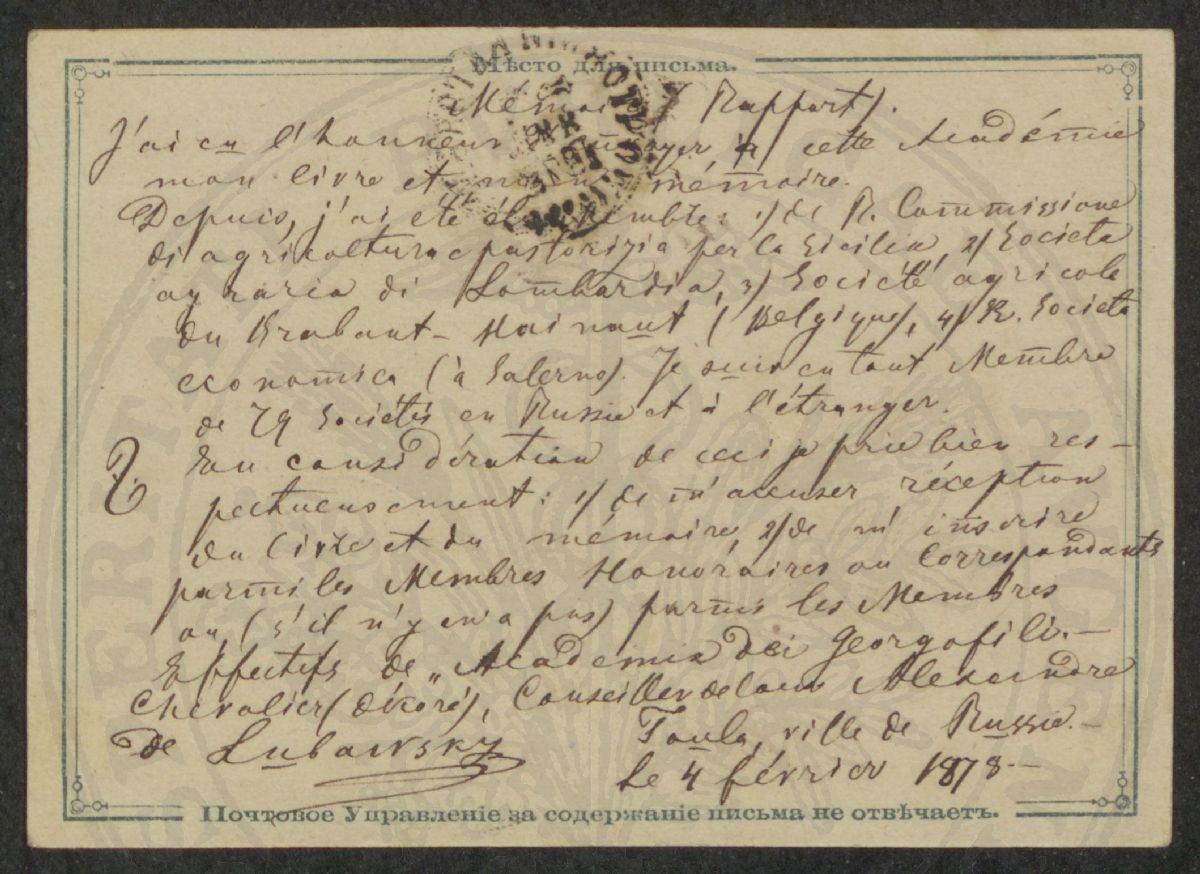 Мѣсто для письма.
Mémoire (Rapport).
J'ai eu l'honneur envoyer à cette Académie
mon livre et mémoire.
Depuis, j'ai été élu Membre: 1) de R. Commissione
di agricoltura e pastorizia per la Sicilia, 2) Societa
agraria di Lombardia, 3) Société agricole
du Brabant-Hainaut (Belgique), 4) R. Societa
economica (à Salerno). Je suis en tout Membre
de 79 Sociétés en Russie et à l'étranger.
En considération de ceci je prie bien res-
pectueusement: 1) de m'accuser réception
du livre et du mémoire, 2) de m'inscrire
parmi les Membres Honoraires ou Correspondants
ou (s'il n'y en a pas) parmi les Membres
Effectifs de „Academia dei Georgofili.-
Chevalier (décoré), Conseiller de la cour Alexandre
de Lubawsky
Toula, ville de Russie.-
Le 4 février 1878.-
Почтовое Управленіе за содержаніе письма не отвѣчаетъ.